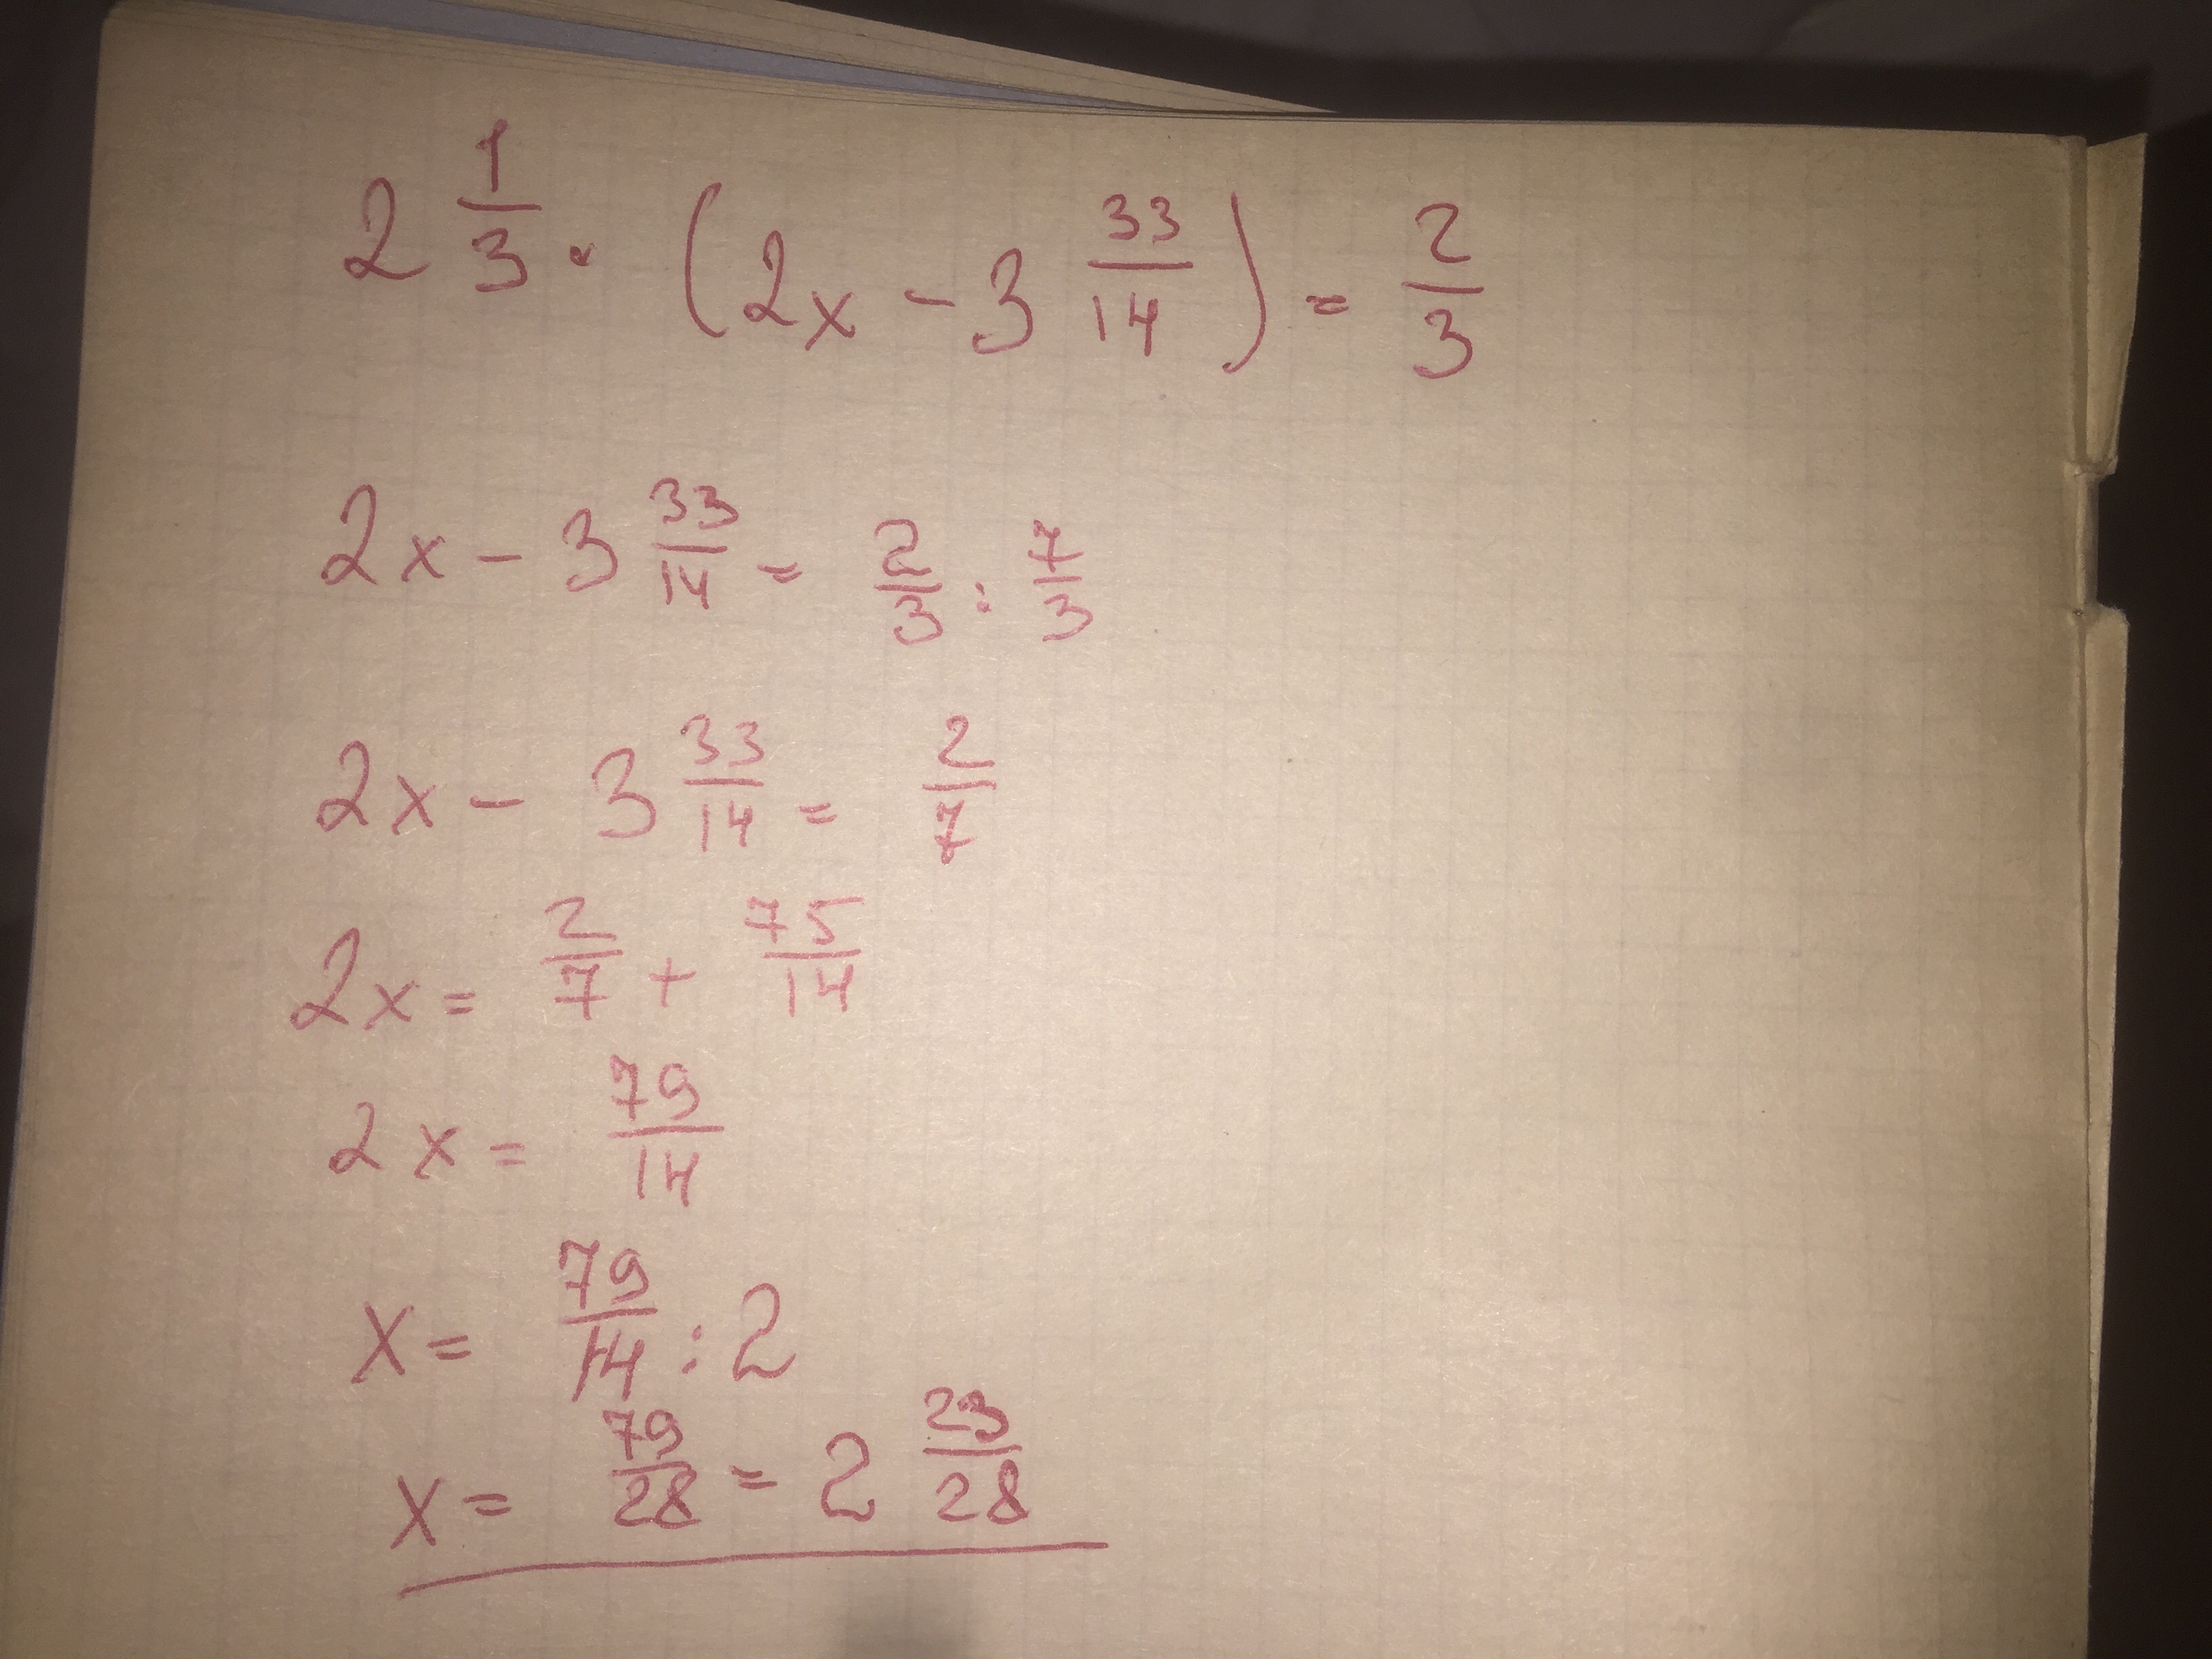 2 1/3 · (2x - 3 33/14) = 2/3
2x - 3 33/14 = 2/3 : 7/3
2x - 3 33/14 = 2/7
2x = 2/7 + 75/14
2x = 79/14
x = 79/14 : 2
x = 79/28 = 2 23/28